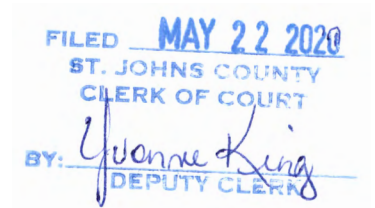 FILED MAY 22 2020
ST. JOHNS COUNTY
CLERK OF COURT
BY: Yvonne King
DEPUTY CLERK